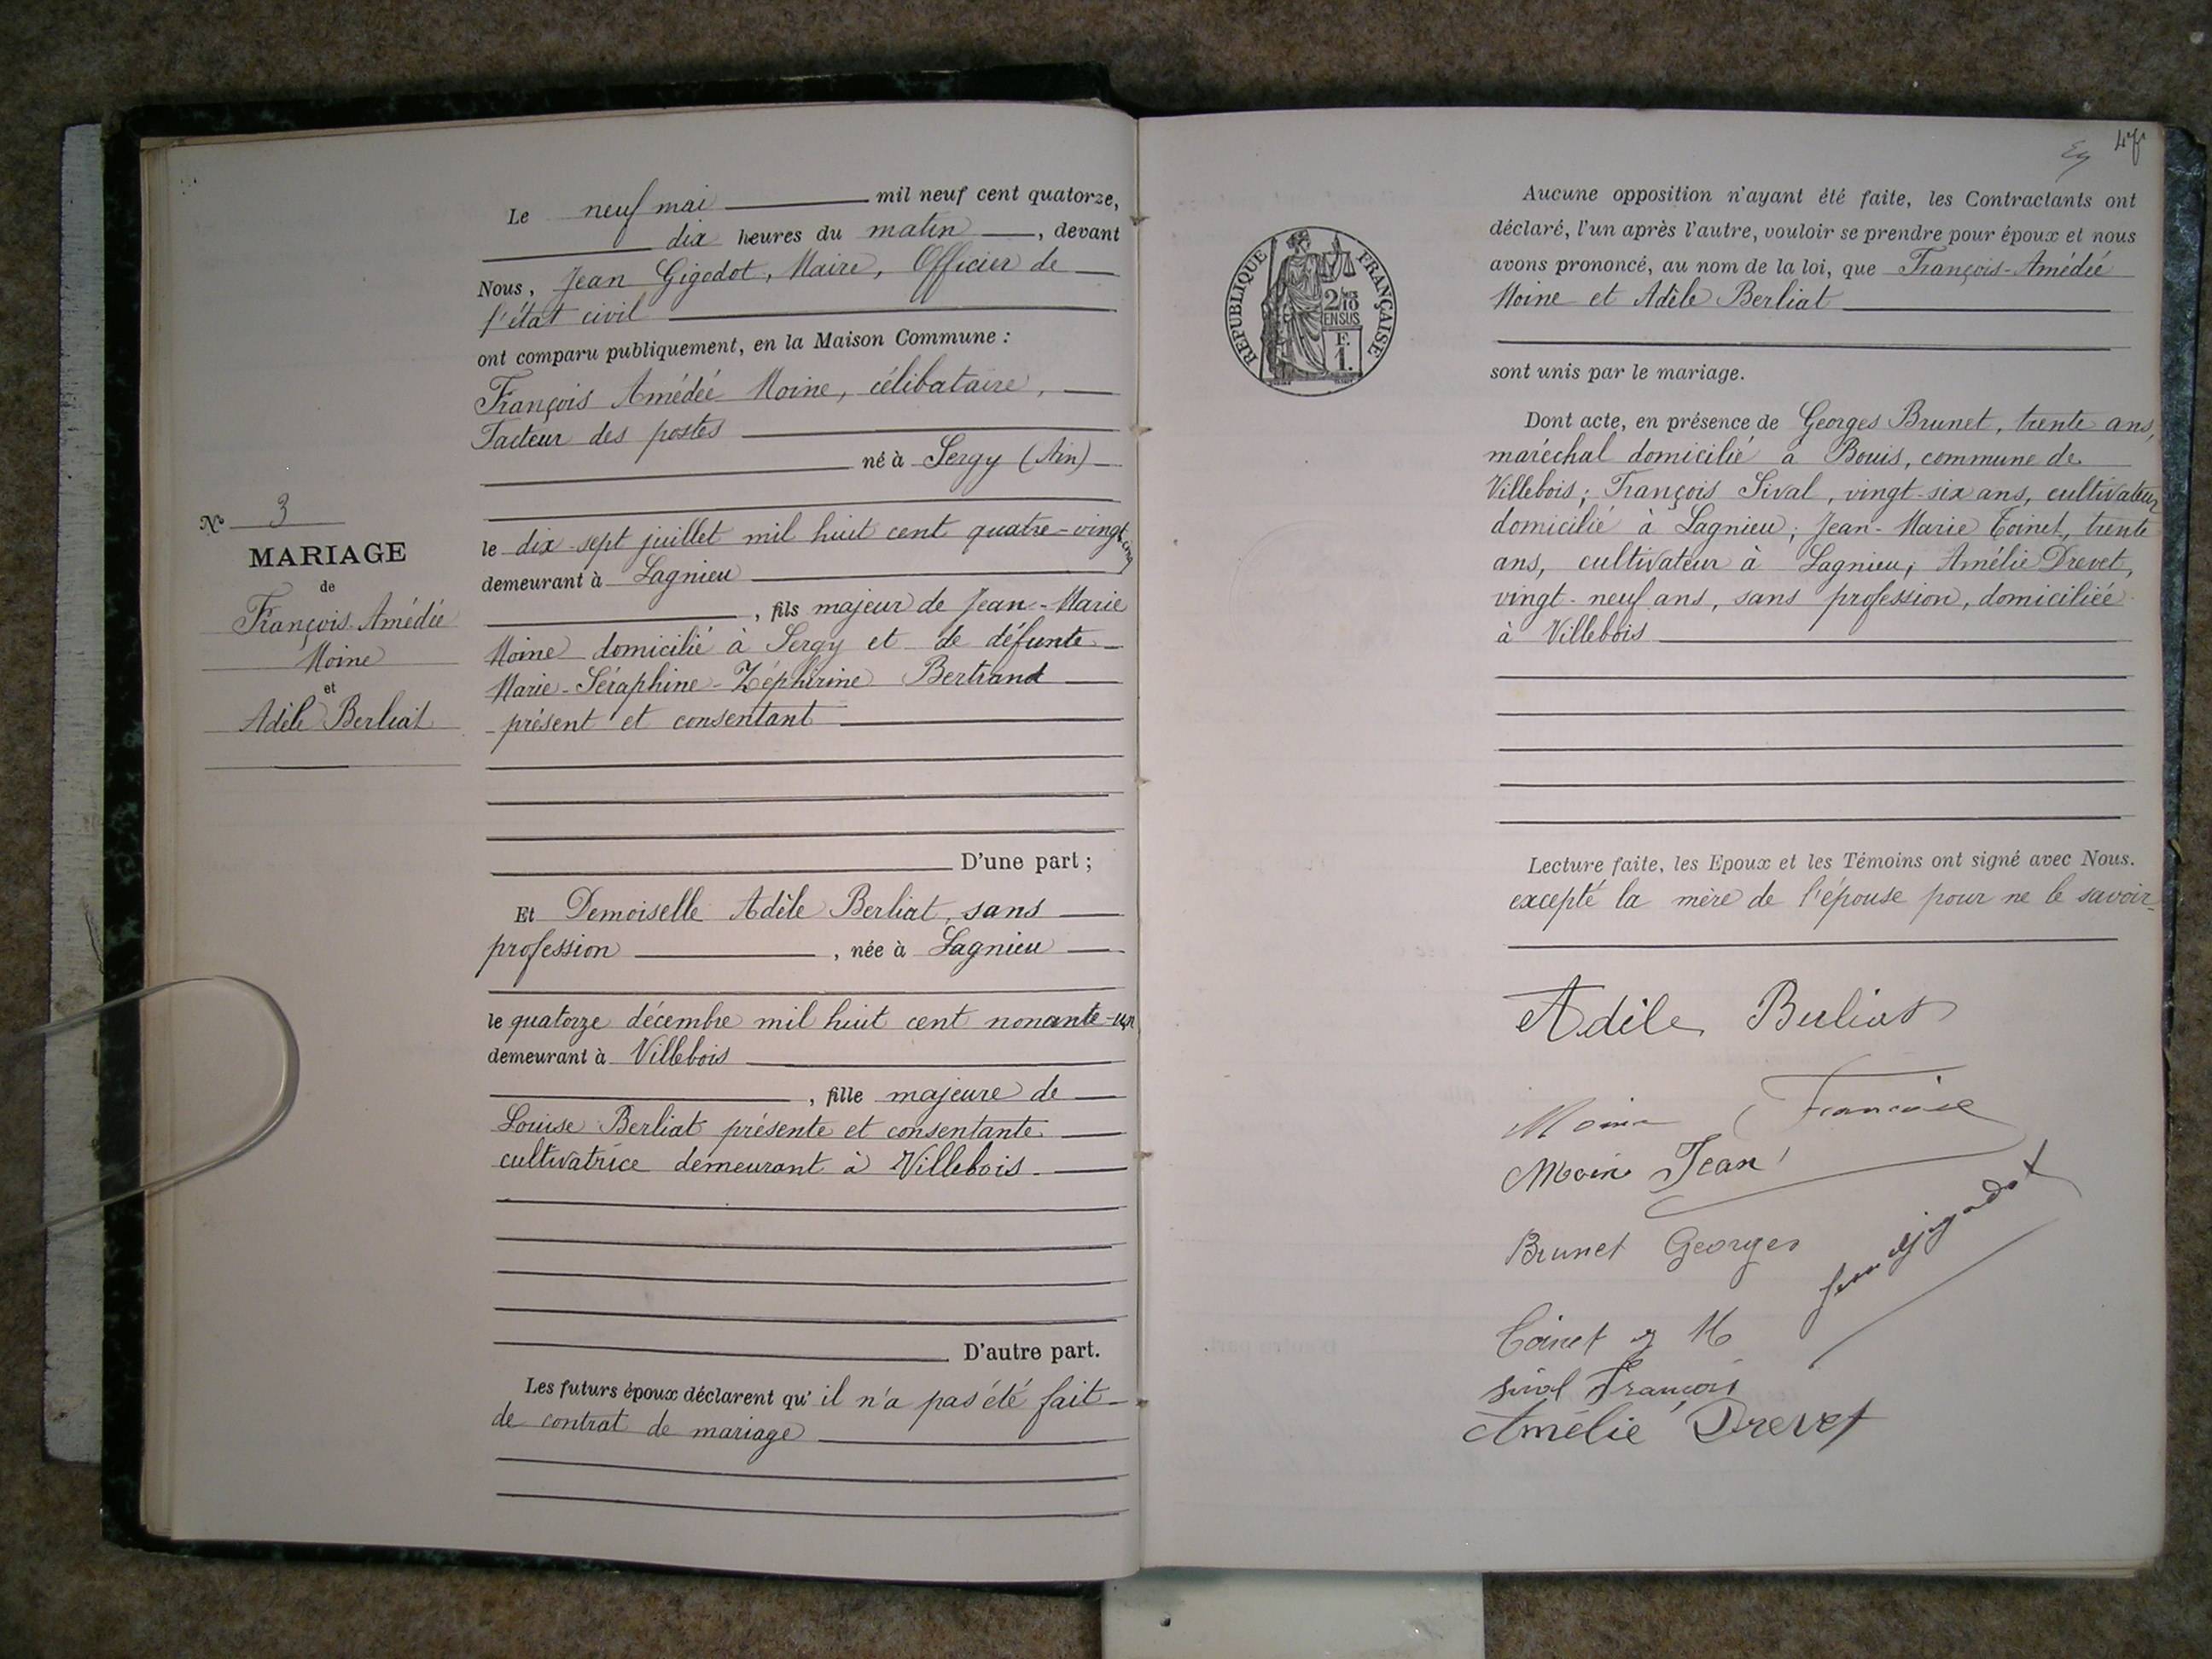 Le neuf mai mil neuf cent quatorze,
dix heures du matin, devant
Nous, Jean Gigodot, Maire, Officier de
l'état civil
ont comparu publiquement, en la Maison Commune :
François Amédée Moine, célibataire,
Facteur des postes
né à Sergy (Ain)
le dix-sept juillet mil huit cent quatre-vingt cinq
demeurant à Lagnieu
, fils majeur de Jean-Marie
Moine domicilié à Sergy et de défunte
Marie-Séraphine-Zéphirine Bertrand
présent et consentant
D'une part ;
Et Demoiselle Adèle Berliat, sans
profession, née à Lagnieu
le quatorze décembre mil huit cent nonante-un
demeurant à Villebois
, fille majeure de
Louise Berliat présente et consentante
cultivatrice demeurant à Villebois.
D'autre part.
Les futurs époux déclarent qu'il n'a pas été fait
de contrat de mariage
N° 3
MARIAGE
de
François-Amédée
Moine
et
Adèle Berliat
47
RÉPUBLIQUE FRANÇAISE
2/10
EN SUS
F.
1.
Aucune opposition n'ayant été faite, les Contractants ont
déclaré, l'un après l'autre, vouloir se prendre pour époux et nous
avons prononcé, au nom de la loi, que François-Amédée
Moine et Adèle Berliat
sont unis par le mariage.
Dont acte, en présence de Georges Brunet, trente ans,
maréchal domicilié à Bouis, commune de
Villebois ; François Sival, vingt-six ans, cultivateur
domicilié à Lagnieu ; Jean-Marie Coinet, trente
ans, cultivateur à Lagnieu ; Amélie Drevet,
vingt-neuf ans, sans profession, domiciliée
à Villebois
Lecture faite, les Epoux et les Témoins ont signé avec Nous.
excepté la mère de l'épouse pour ne le savoir
Adèle Berliat
Moine François
Moine Jean
Brunet Georges
Jean Gigodot
Coinet J M
Sival François
Amélie Drevet